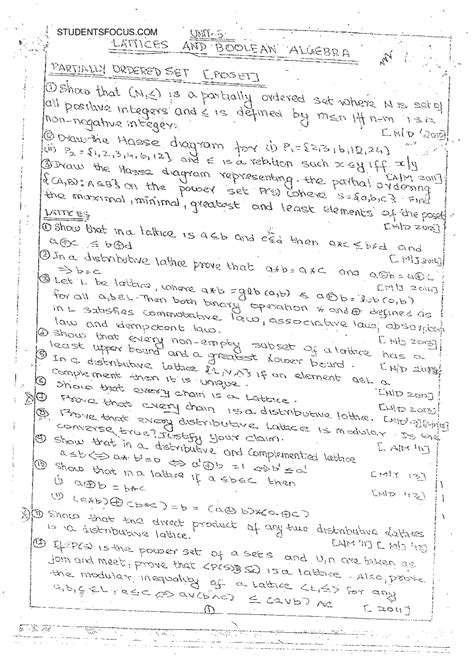 STUDENTSFOCUS.COM UNIT-5
LATTICES AND BOOLEAN ALGEBRA
PARTIALLY ORDERED SET [POSET]
① Show that (N,≤) is a partially ordered set where N is set of
all positive integers and ≤ is defined by m≤n iff n-m is a
non-negative integer. [N/D 2012]
② Draw the Hasse diagram for (i) P₁={2,3,6,12,24}
(ii) P₂={1,2,3,4,6,12} and ≤ is a relation such x≤y iff x/y
③ Draw the Hasse diagram representing the partial ordering
{(A,B): A⊆B} on the power set P(S) where S={a,b,c}. Find
the maximal, minimal, greatest and least elements of the poset
LATTICES
① Show that in a lattice is a≤b and c≤d then a*c ≤ b*d and
a⊕c ≤ b⊕d
② In a distributive lattice prove that a*b=a*c and a⊕b=a⊕c
⇒ b=c
③ Let L be lattice, where a*b=glb(a,b) & a⊕b=lub(a,b)
for all a,b∈L. Then both binary operation * and ⊕ defined as
in L satisfies commutative law, associative law, absorption
law and idempotent law.
④ Show that every non-empty subset of a lattice has a
least upper bound and a greatest lower bound.
⑤ In a distributive lattice {L,∨,∧} if an element a∈L a
complement then it is unique. [N/D 2012]
⑥ Show that every chain is a lattice.
⑦ Prove that every chain is a distributive lattice.
⑧ Prove that every distributive lattice is modular. Is the
converse true? Justify your claim.
⑨ Show that in a distributive and complemented lattice
a≤b ⇔ a*b'=0 ⇔ a'⊕b=1 ⇔ b'≤a'
⑩ Show that in a lattice if a≤b≤c then
(i) a⊕b = b*c
(ii) (a*b)⊕(b*c)=b=(a⊕b)*(a⊕c)
⑪ Show that the direct product of any two distributive lattices
is a distributive lattice.
⑫ If P(S) is the power set of a set S and ∪,∩ are taken as
join and meet, prove that <P(S),⊆> is a lattice. Also, prove
the modular inequality of a Lattice <L,≤> for any
a,b,c∈L, a≤c ⇔ a∨(b∧c) ≤ (a∨b)∧c [2011]